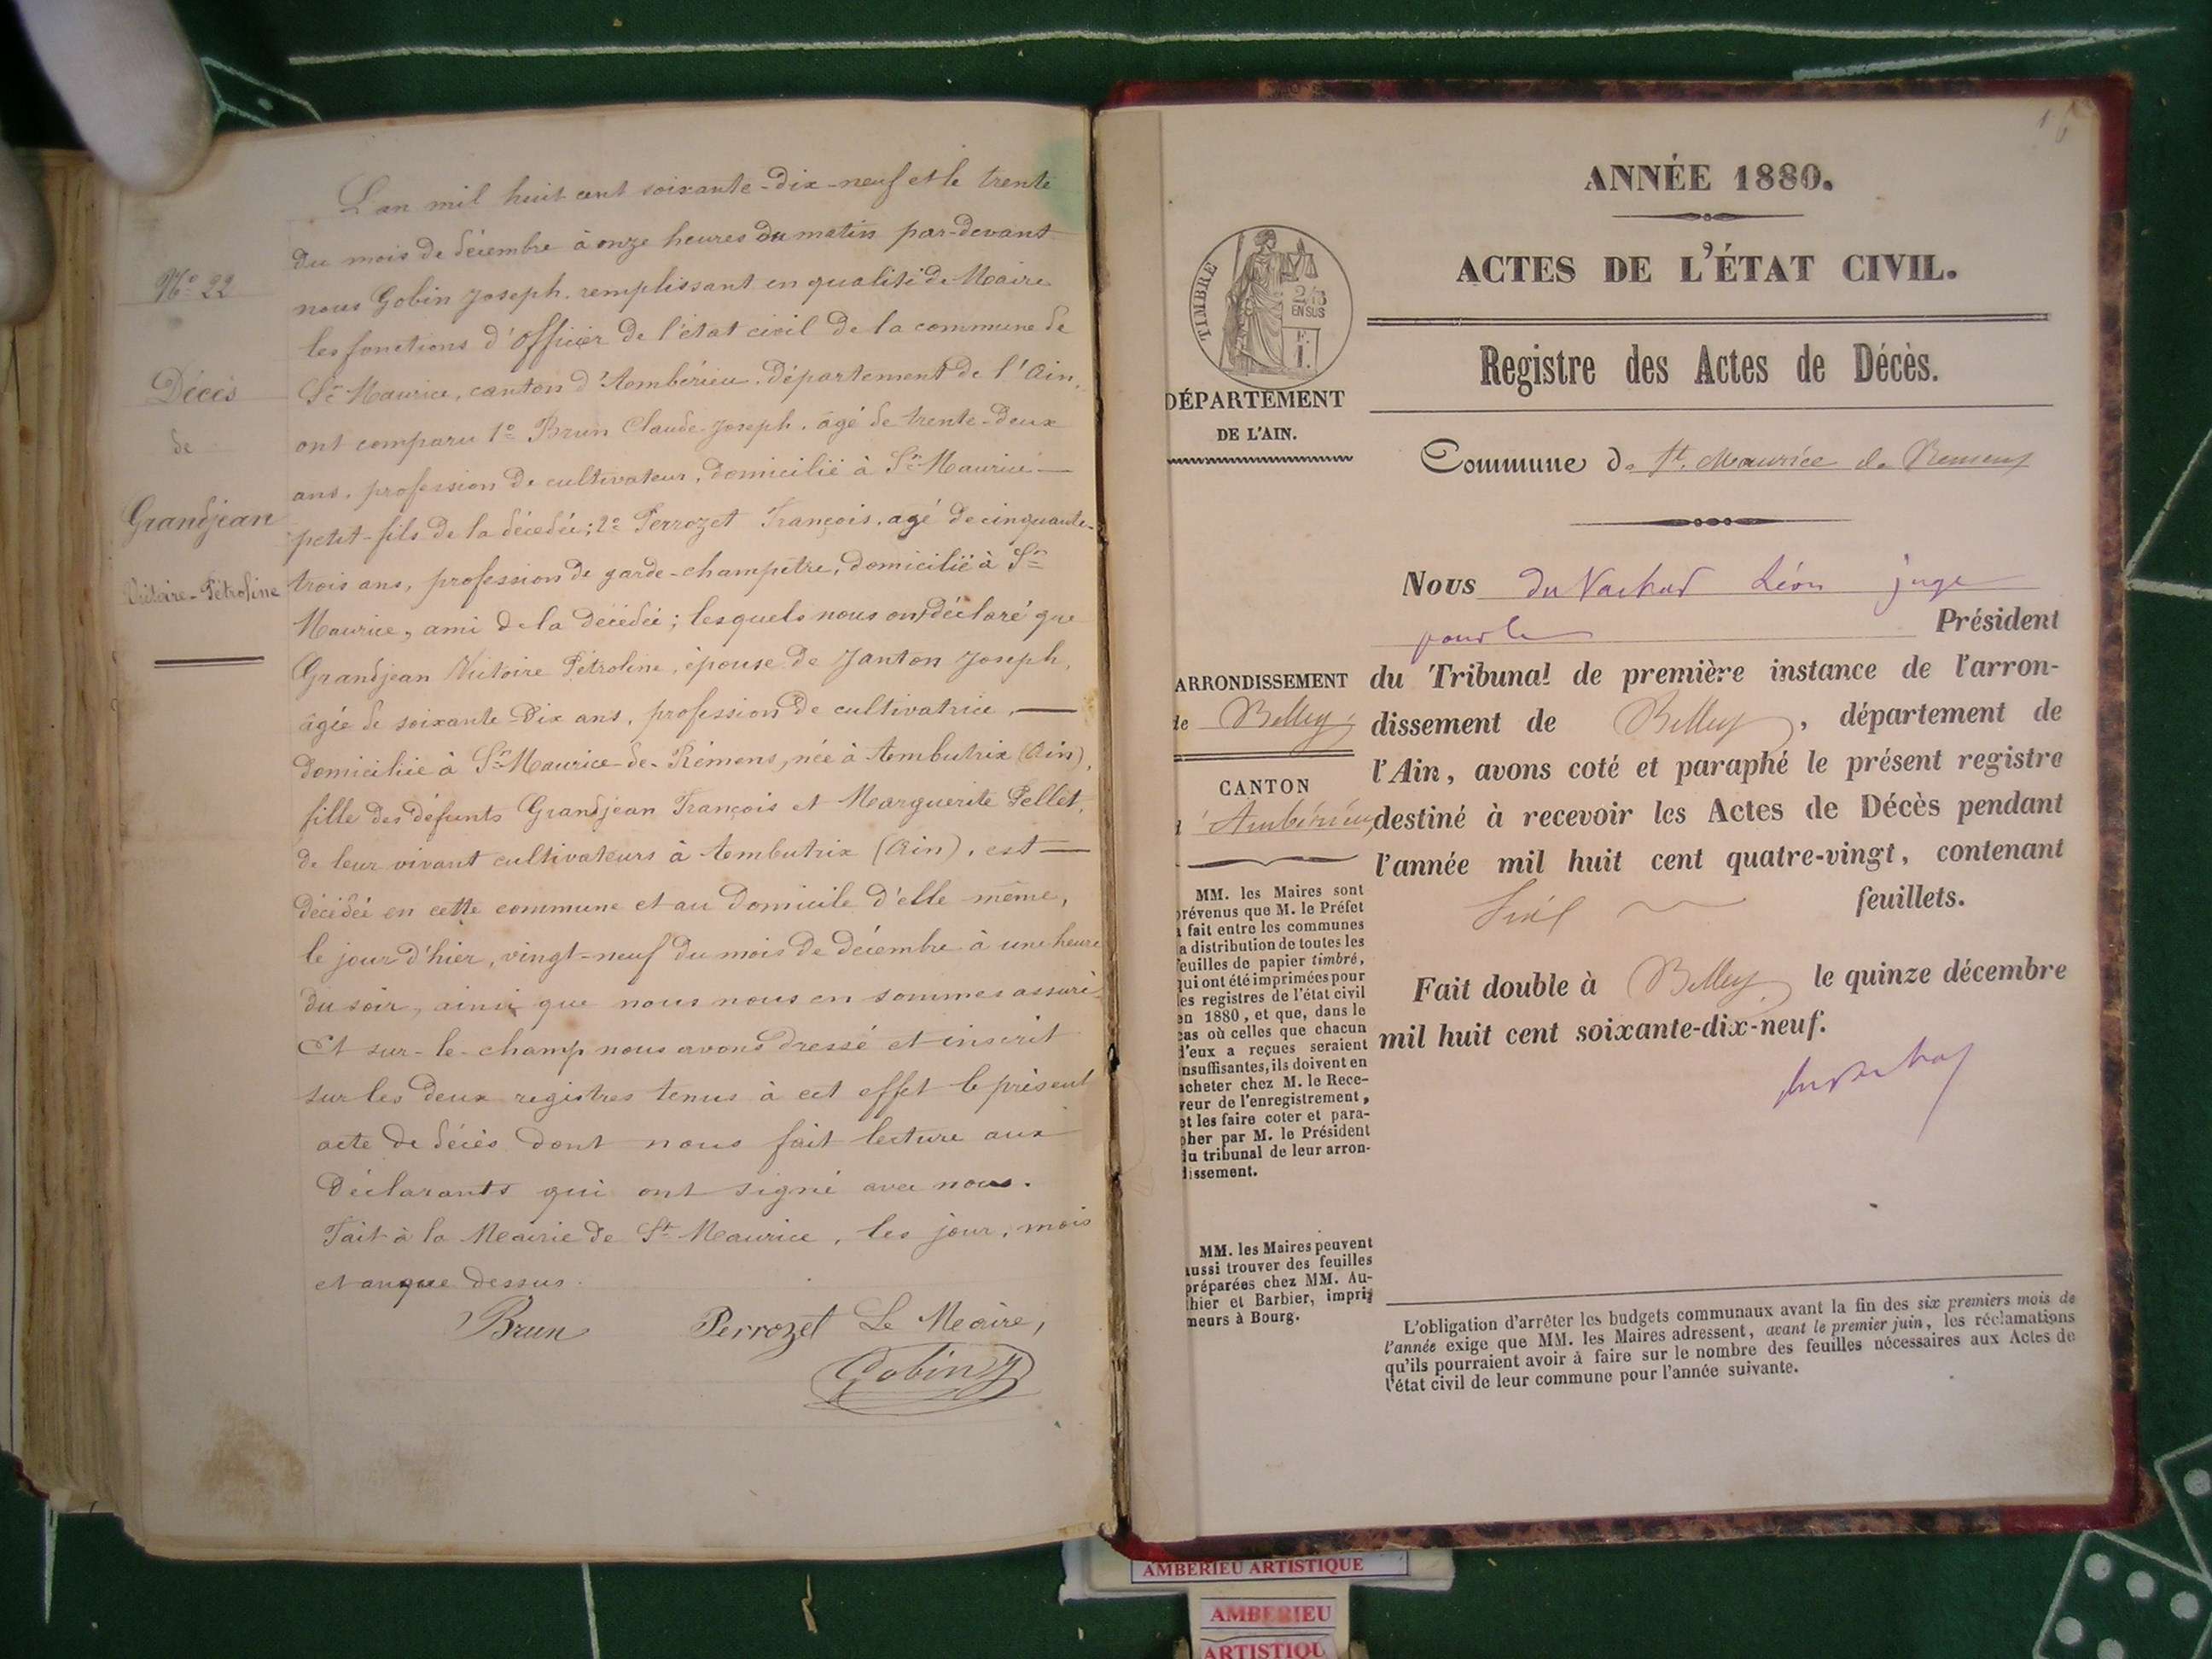 L'an mil huit cent soixante-dix-neuf et le trente
du mois de décembre à onze heures du matin par-devant
nous Gobin Joseph, remplissant en qualité de Maire
les fonctions d'officier de l'état civil de la commune de
St Maurice, canton d'Ambérieu, département de l'Ain,
ont comparu 1º Brun Claude-Joseph, âgé de trente-deux
ans, profession de cultivateur, domicilié à St Maurice —
petit-fils de la décédée; 2º Perrozet François, agé de cinquante-
trois ans, profession de garde-champêtre, domicilié à St
Maurice, ami de la décédée; lesquels nous ont déclaré que
Grandjean Victoire Pétroline, épouse de Janton Joseph,
âgée de soixante-dix ans, profession de cultivatrice, —
domiciliée à St Maurice-de-Rémens, née à Ambutrix (Ain),
fille des défunts Grandjean François et Marguerite Pellet,
de leur vivant cultivateurs à Ambutrix (Ain), est —
décédée en cette commune et au domicile d'elle même,
le jour d'hier, vingt-neuf du mois de décembre à une heure
du soir, ainsi que nous nous en sommes assuré.
Et sur-le-champ nous avons dressé et inscrit
sur les deux registres tenus à cet effet le présent
acte de décès dont nous fait lecture aux
déclarants qui ont signé avec nous.
Fait à la Mairie de St Maurice, les jour, mois
et an que dessus.
Brun Perrozet Le Maire,
Gobin J
Nº 22
Décès
de
Grandjean
Victoire-Pétroline
ANNÉE 1880.
ACTES DE L'ÉTAT CIVIL.
Registre des Actes de Décès.
Commune de St. Maurice de Remens
Nous Léon juge
pour le Président
du Tribunal de première instance de l'arron-
dissement de Belley, département de
l'Ain, avons coté et paraphé le présent registre
destiné à recevoir les Actes de Décès pendant
l'année mil huit cent quatre-vingt, contenant
feuillets.
Fait double à Belley le quinze décembre
mil huit cent soixante-dix-neuf.
L'obligation d'arrêter les budgets communaux avant la fin des six premiers mois de
l'année exige que MM. les Maires adressent, avant le premier juin, les réclamations
qu'ils pourraient avoir à faire sur le nombre des feuilles nécessaires aux Actes de
l'état civil de leur commune pour l'année suivante.
TIMBRE
2/10
EN SUS
F.
1.
DÉPARTEMENT
DE L'AIN.
ARRONDISSEMENT
de Belley
CANTON
d'Ambérieu
MM. les Maires sont
prévenus que M. le Préfet
a fait entre les communes
la distribution de toutes les
feuilles de papier timbré,
qui ont été imprimées pour
les registres de l'état civil
en 1880, et que, dans le
cas où celles que chacun
d'eux a reçues seraient
insuffisantes, ils doivent en
acheter chez M. le Rece-
veur de l'enregistrement,
et les faire coter et para-
pher par M. le Président
du tribunal de leur arron-
dissement.
MM. les Maires peuvent
aussi trouver des feuilles
préparées chez MM. Au-
thier et Barbier, impri-
meurs à Bourg.
AMBERIEU ARTISTIQUE
AMBERIEU
ARTISTIQU